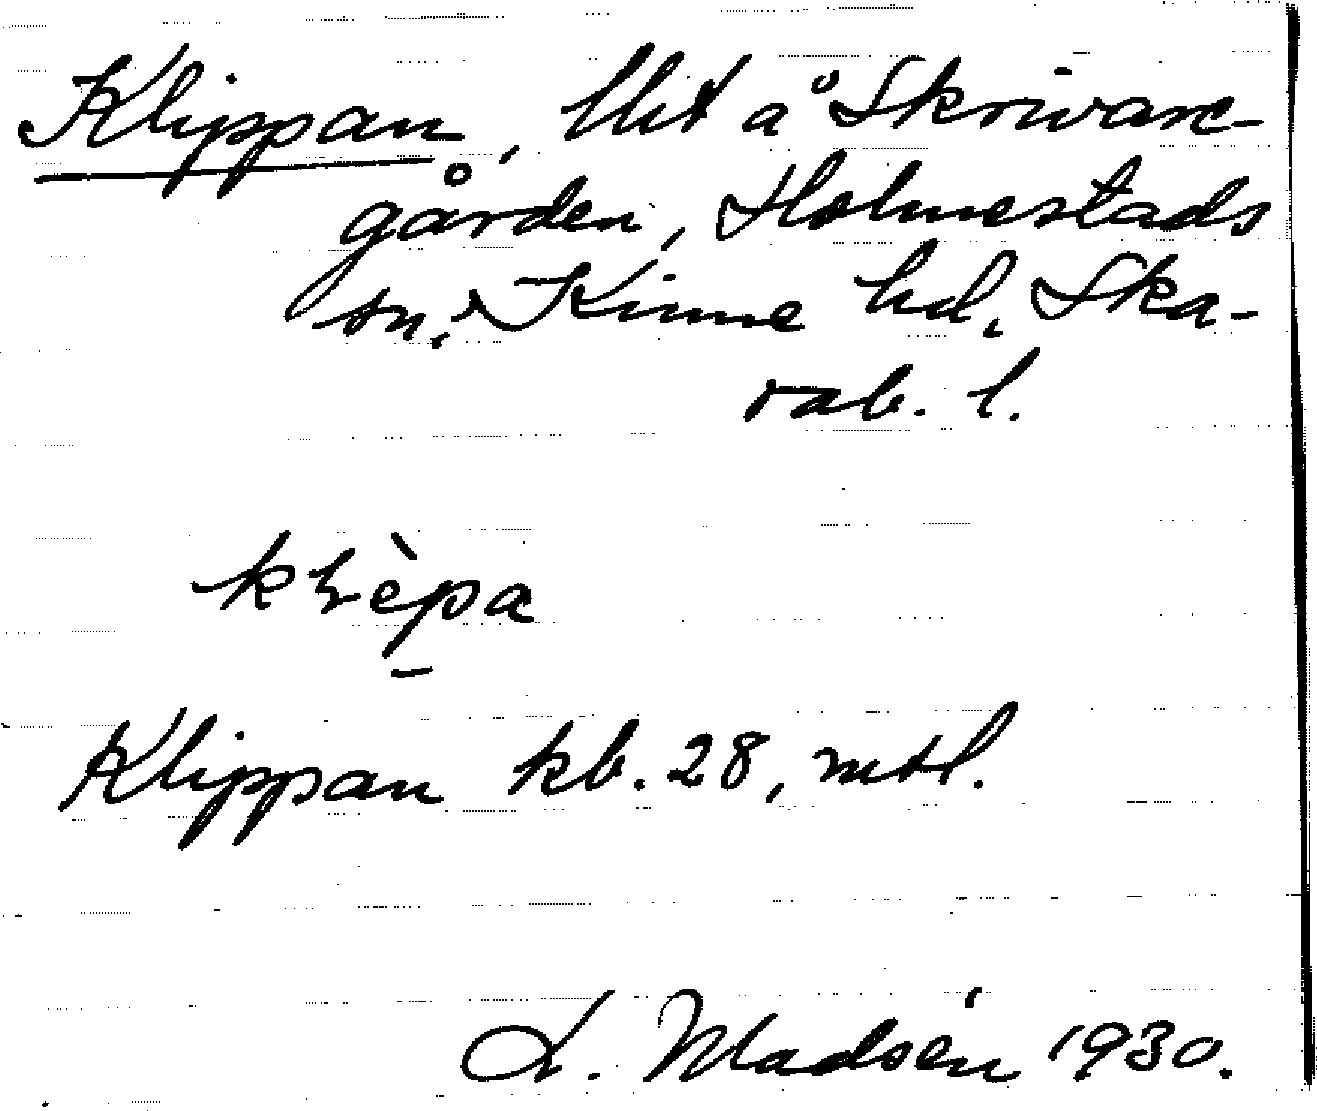 Klippan, lht å Skrivare-
gården, Holmestads
sn. Kinne hd, Ska-
rab. l.
Klippan kb. 28, mtl.
L. Madsén 1930.